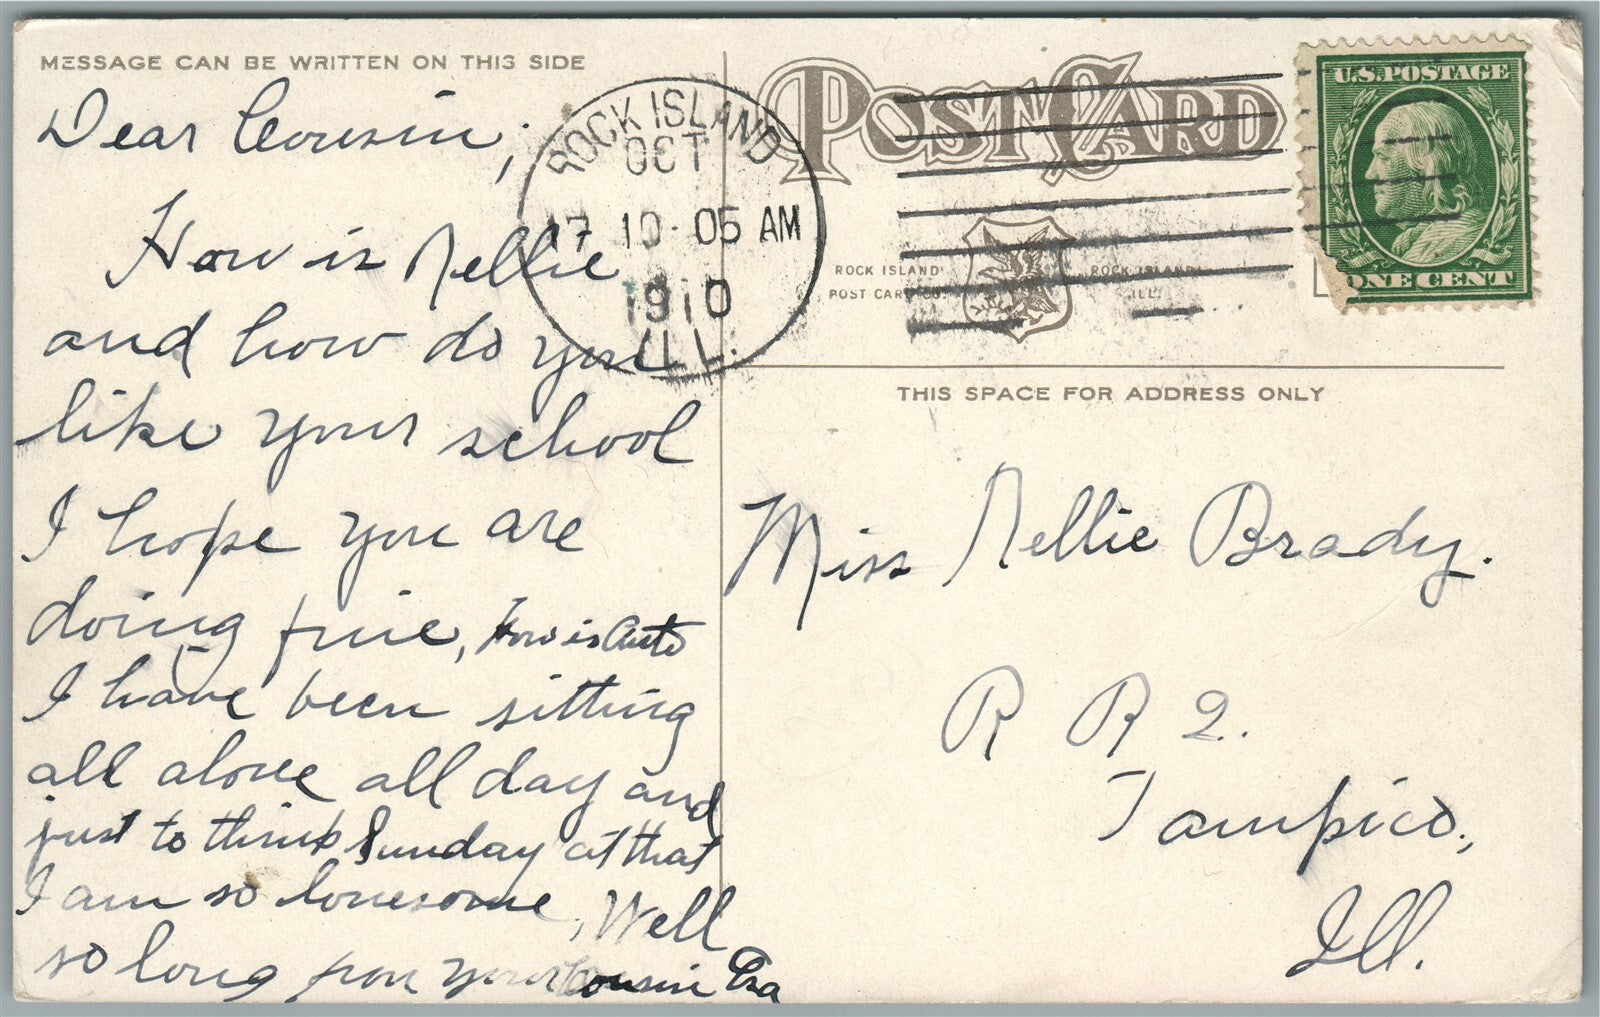 MESSAGE CAN BE WRITTEN ON THIS SIDE
Dear Cousin,
How is Nellie
and how do you
like your school
I hope you are
doing fine, How is Auto
I have been sitting
all alone all day and
just to think Sunday at that
I am so lonesome, Well
so long from your Cousin Eva
ROCK ISLAND
OCT
17 10-05 AM
1910
ILL.
POST CARD
U.S. POSTAGE
ONE CENT
ROCK ISLAND
POST CARD CO.
ROCK ISLAND
ILL.
THIS SPACE FOR ADDRESS ONLY
Miss Nellie Brady.
R R 2.
Tampico,
Ill.